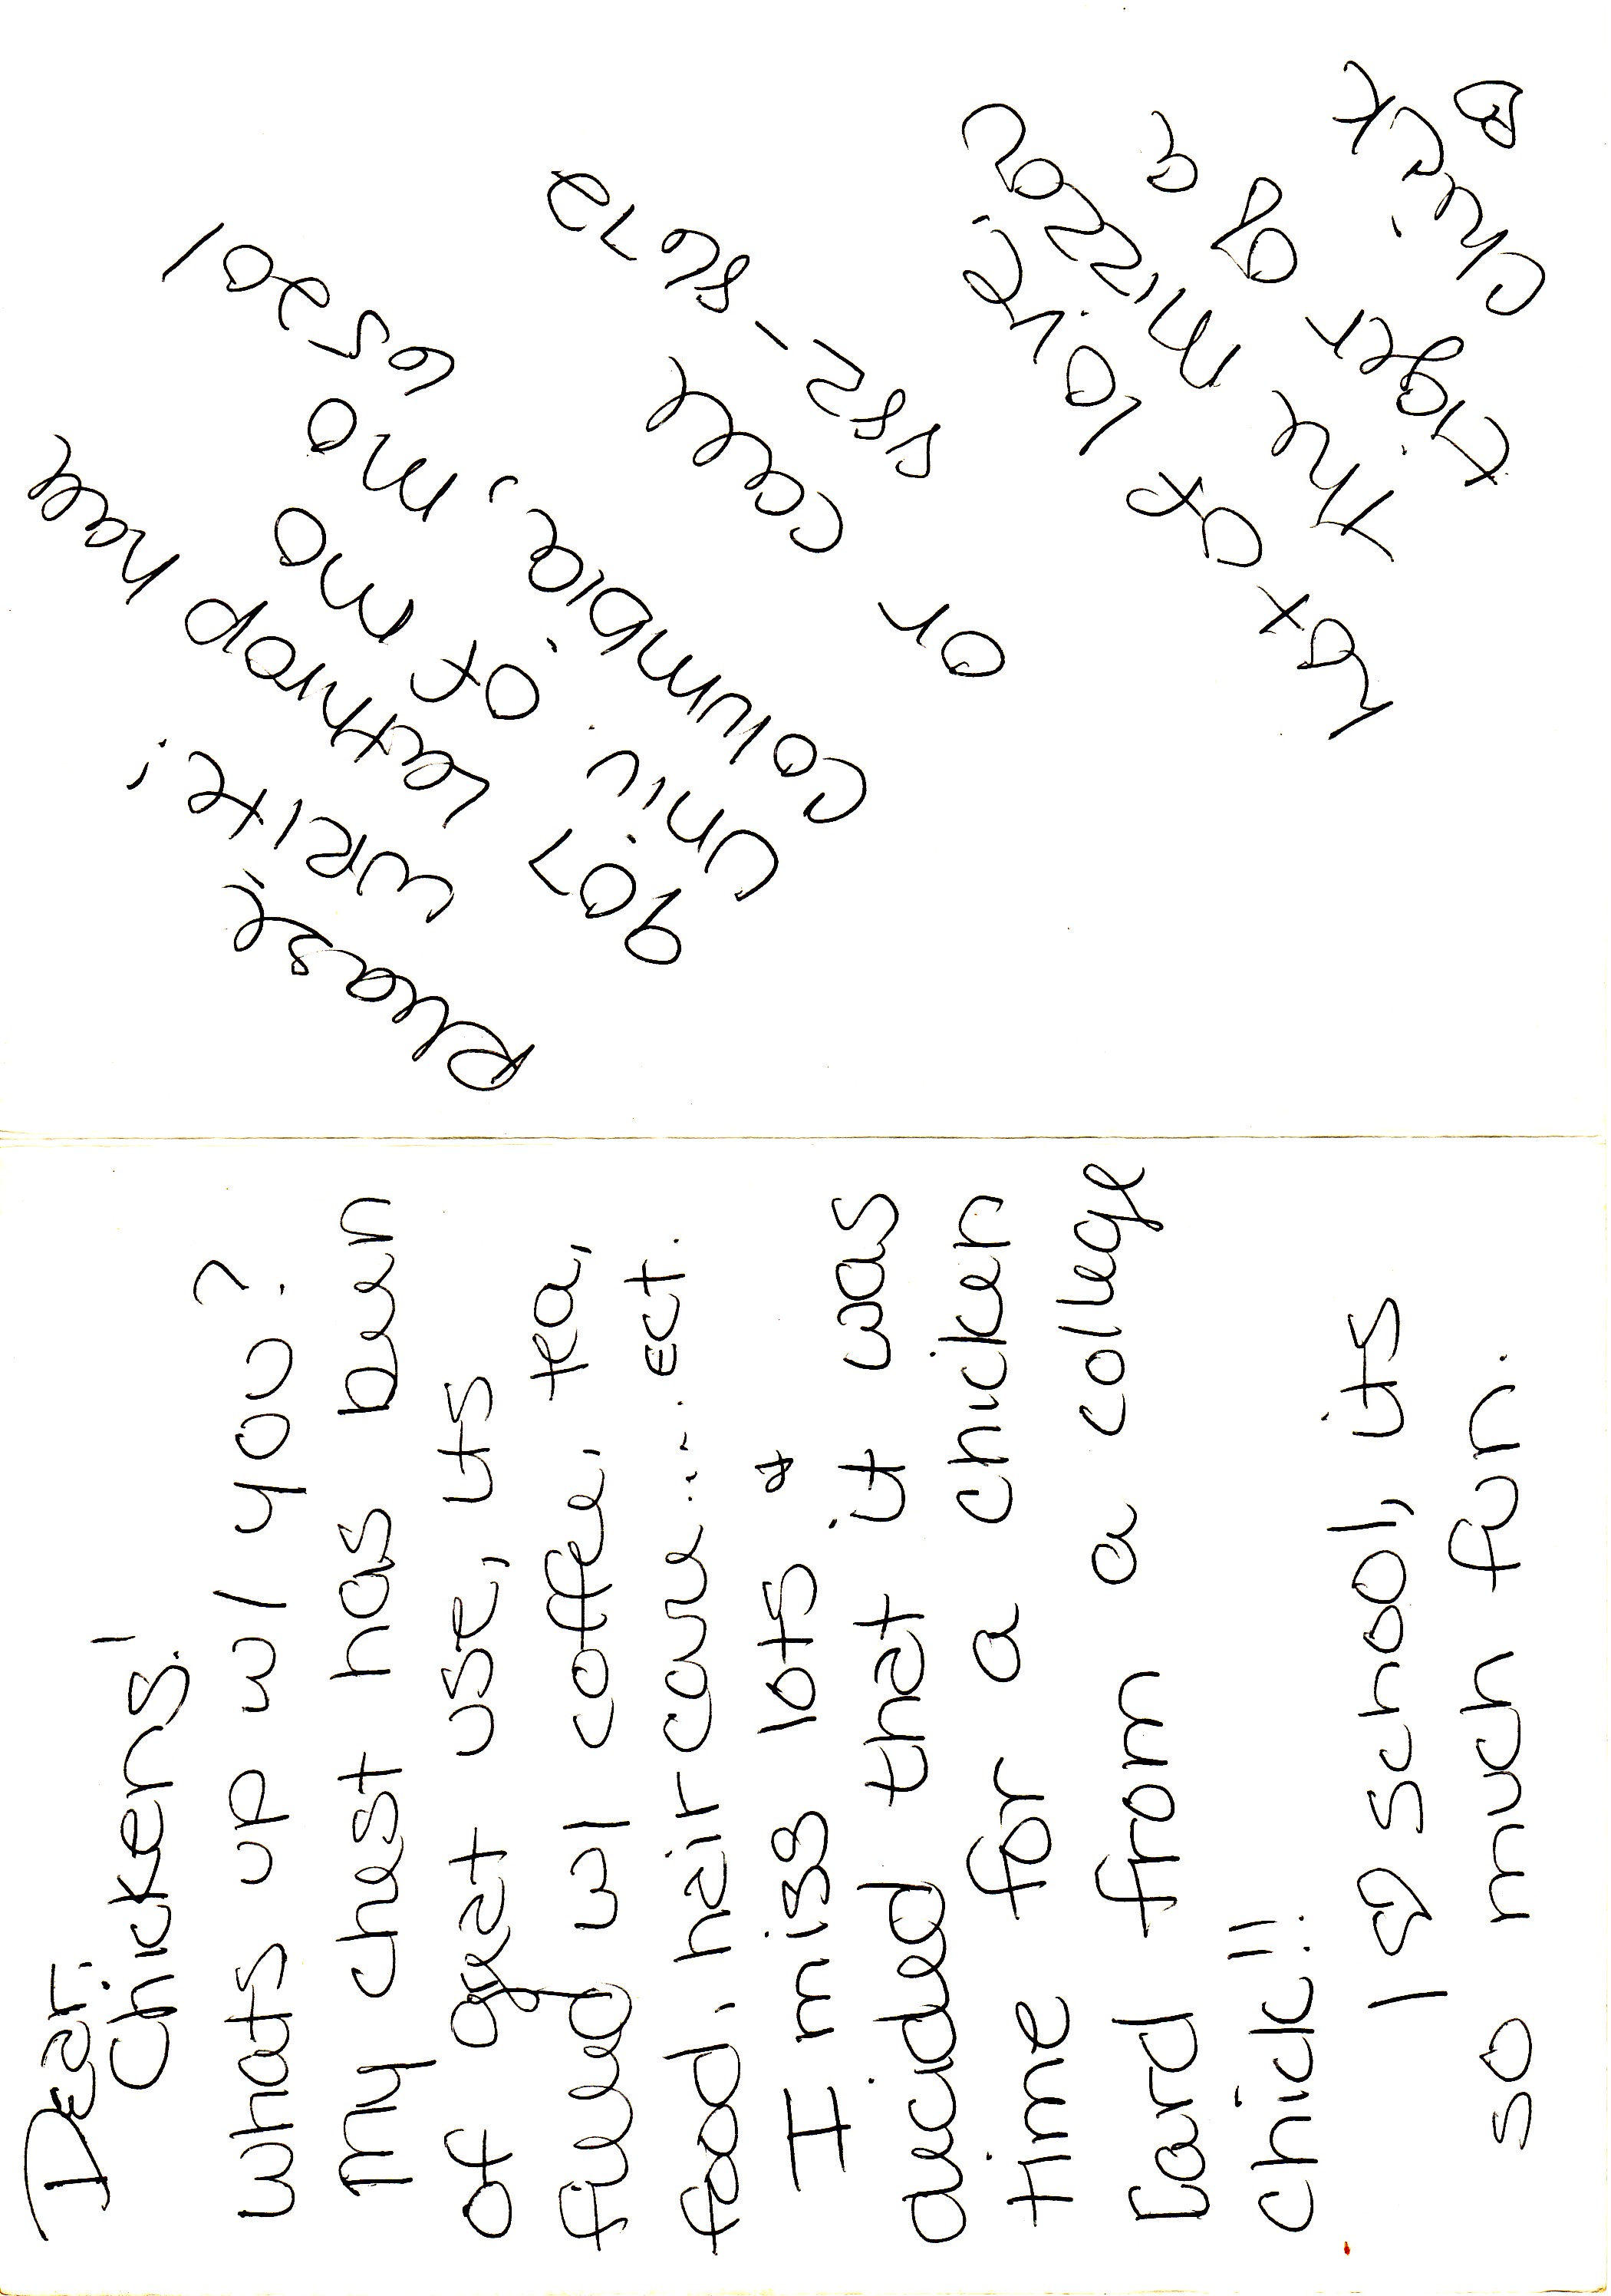 Dear,
Chickens!
whats up w/ you?
My chest has been
of great use, its
filled w/ coffee, tea,
food, hair care.... ect.
I miss lots &
decided that it was
time for a chicken
card from a college
chick!!
I ♡ school, its
so much fun.
Please,
write!
907 Lathrop hall
Univ. of mo
Columbia, mo
65201
or call
882-8672
lot of love,
The Mizzou
tiger
chick